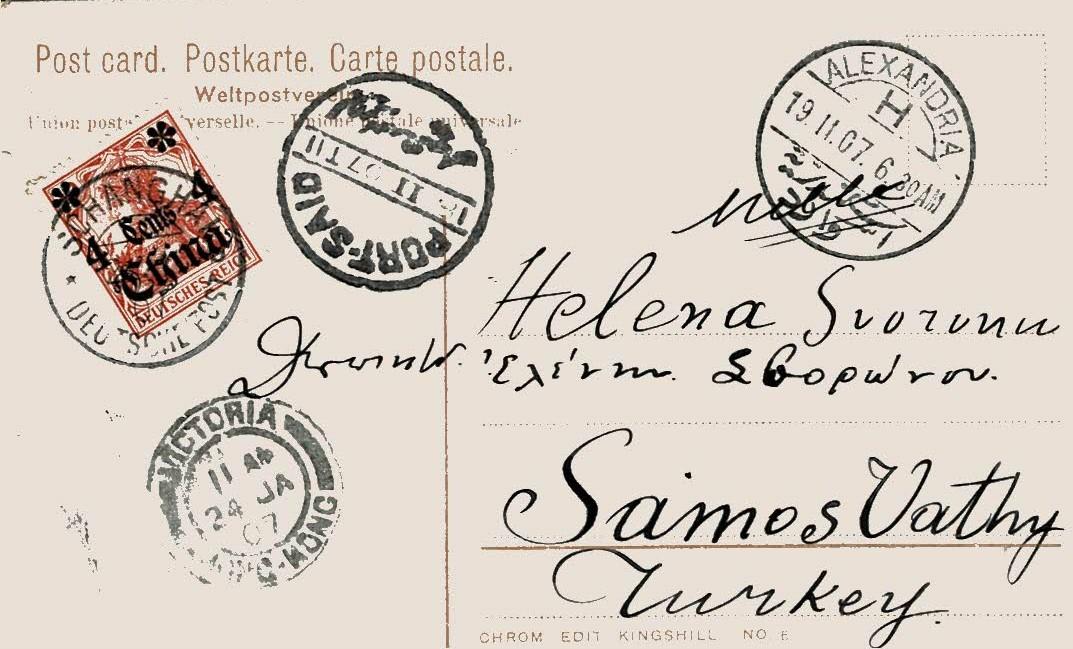 Post card. Postkarte. Carte postale.
Weltpostverein
Union postale universelle. — Unione postale universale
4 4
Cents
China
DEUTSCHES REICH
SHANGHAI
* DEUTSCHE POST
PORT-SAID
II 07 T II
ALEXANDRIA
H
19.II.07. 6.30AM
Helena Svoronu
Δεσποινίδα Ἑλένην Σβορώνου.
Samos Vathy
Turkey.
VICTORIA
11 AM
24 JA
07
HONG-KONG
CHROM EDIT KINGSHILL NO E